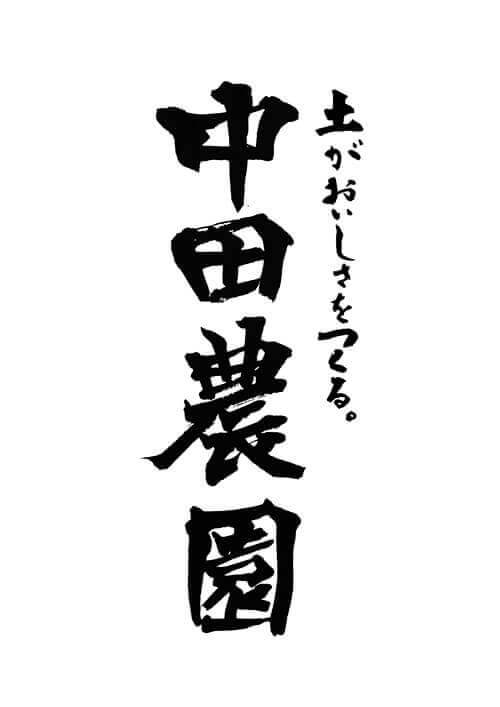 土がおいしさをつくる。
中田農園